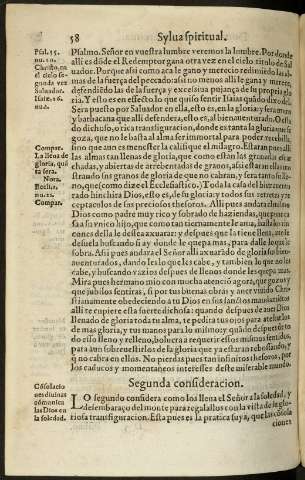 58 Sylua spiritual.
Psal. 35.
nu. 10.
Christo, en
el cielo se-
gunda vez
Saluador.
Isaiæ. 26.
nu.
Compar.
La llena de
gloria, quã
ta sera.
Nota.
Compar.
Psalmo. Señor en vuestra lumbre veremos la lumbre. Por donde
alli es dõde el Redemptor gana otra vez en el cielo titulo de Sal
uador. Porque assi como aca le gano y merecio redimiedo las al-
mas de la fuerça del peccado: assi no menos alli le gana y merece,
defendiẽdo las de la fuerça y excessiua pujança de su propria glo
ria. Y esto es en effecto lo que quiso sentir Isaias quãdo dixo del.
Sera puesto por Saluador en ella, esto es, en la gloria, y sera muro
y barbacana que alli defendera, esto es, al bienauenturado. O esta
do dichoso, o rica transfiguracion, donde es tanta la gloria que se
goza, que no le basta al alma ser immortal para poder
sino que aun es menester la califique el milagro. Estaran pues alli
las almas tan llenas de gloria, que como estan las granadas
chadas, y abiertas de arrebentadas de granos, assi estaran
trando sus granos de gloria de que no cabran, y sera tanto
no, que (como dize el Ecclesiastico.) Toda la casa del bienauentu
rado hinchira Dios, esto es, de su gloria: y todos sus retretes y re
ceptaculos de sus preciosos thesoros. Alli pues andara
Dios como padre muy rico y sobrado de haziendas, que
sa a su vnico hijo, que como tan tiernamente le ama,
cones della le desea axuar: y despues que la tiene llena, anda
desuela buscando si ay donde le quepa mas, para dalle lo que le
sobra. Assi pues andara el Señor alli axuarãdo de gloria sus bien-
auenturados, dando les lo que les cabe, y tambien lo que no les
cabe, y buscando vazios despues de llenos donde les quepa mas.
Mira pues hermano mio con mucha atencion agora, que gozos y
que jubilos sentiras, si por tus buenas obras y auer viuido Chri-
stianamente obedeciendo a tu Dios en sus sanctos mandamientos
alli te cupiere esta suerte dichosa: quando despues de auer Dios
llenado de gloria toda tu alma, te pedira tus ojos para
de mas gloria, y tus manos para lo mismo: y quãdo despues de to
do esso lleno y relleno, boluera a requerir essos mismos sentidos,
para aun sobreuestirlos de la gloria que ya estaran rebossando, y
q̃ no cabra en ellos. No pierdas pues tan infinitos thesoros, por
los caducos y momentaneos interesses deste miserable mundo.
Segunda consideracion.
Cõsolacio
nes diuinas
cõmunica
las Dios en
la soledad.
LO segundo considera como los lleua el Señor a la soledad, y
desembaraço del monte para regalallos con la vista de su glo-
riosa transfiguracion. Esta pues es la pratica suya, que las consola
ciones